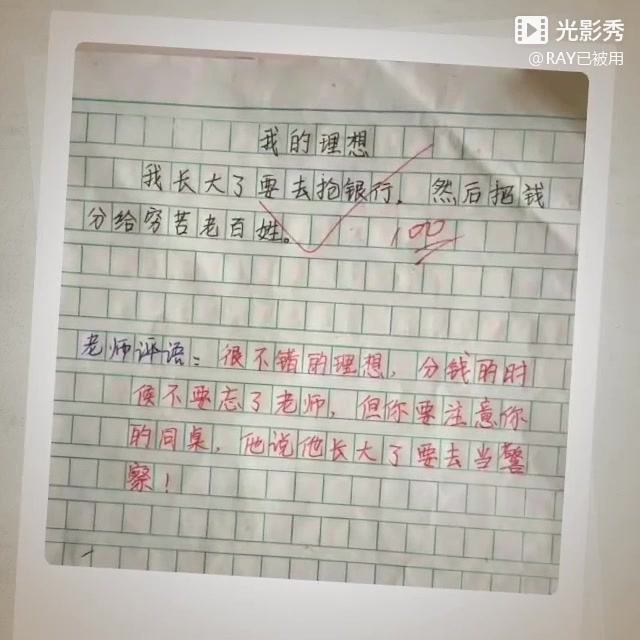 光影秀
@RAY已被用
我的理想
我长大了要去抢银行，然后把钱
分给穷苦老百姓。
100
老师评语：很不错的理想，分钱的时
候不要忘了老师，但你要注意你
的同桌，他说他长大了要去当警
察！